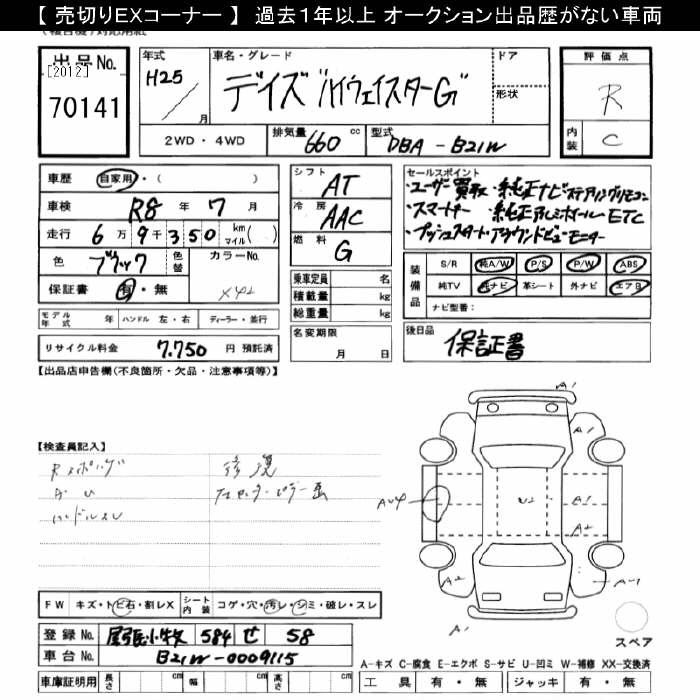 【 売切りEXコーナー 】 過去1年以上 オークション出品歴がない車両
出品No.
[2012]
70141
年式 H25 / 月
車名・グレード デイズ"ハイウェイスターG"
ドア
形状
評価点 R
内装 C
2WD・4WD
排気量 660 cc
型式 DBA-B21W
車歴 自家用・( )
車検 R8 年 7 月
走行 6万9千350 km マイル( )
色 ブラック 色替
カラーNo.
保証書 有・無
モデル年式 年 ハンドル 左・右 ディーラー・並行
リサイクル料金 7.750 円 預託済
シフト AT
冷房 AAC
燃料 G
乗車定員 名
積載量 kg
総重量 kg
名変期限 月 日
セールスポイント
・ユーザー買取・純正ナビ・ステアリングリモコン
・スマートキー ・純正アルミホイール・ETC
・プッシュスタート・アラウンドビューモニター
装備品
S/R 純A/W P/S P/W ABS
純TV 純ナビ 革シート 外ナビ エアB
ナビ型番:
後日品 保証書
【出品店申告欄(不良箇所・欠品・注意事項等)】
【検査員記入】
修復
ハンドルスレ
A1
A1
A1
A2
A2
U2
FW キズ・トビ石・割レX シート内装 コゲ・穴・汚レ・シミ・破レ・スレ
登録No. 尾張小牧 584 せ 58
車台No. B21W-0009115
車庫証明用 長さ cm 幅 cm 高さ cm
スペア
A-キズ C-腐食 E-エクボ S-サビ U-凹ミ W-補修 XX-交換済
工具 有・無 ジャッキ 有・無